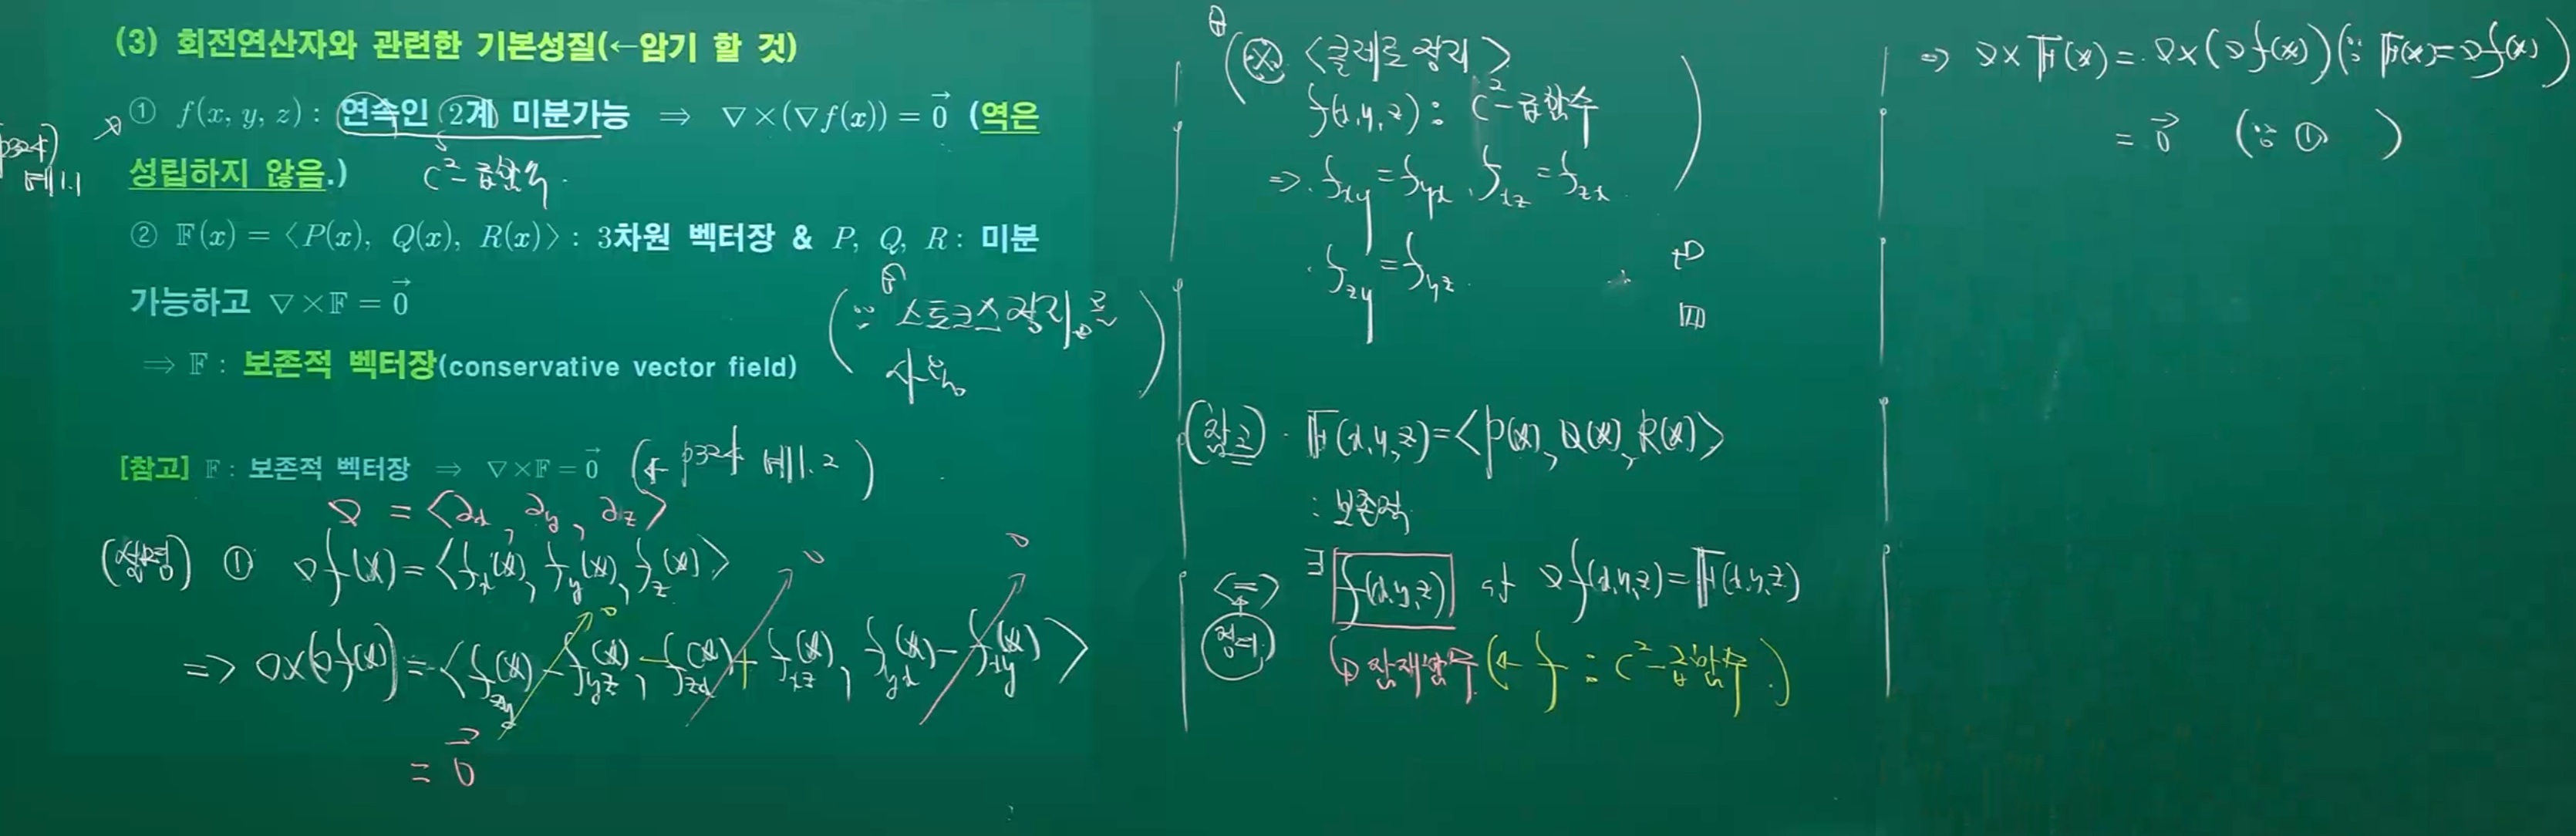 (3) 회전연산자와 관련한 기본성질(←암기 할 것)
① f(x, y, z) : 연속인 2계 미분가능 ⇒ ∇×(∇f(x)) = 0⃗ (역은
성립하지 않음.)
C²-급함수.
p324)
예1.1
② 𝔽(x) = ⟨P(x), Q(x), R(x)⟩ : 3차원 벡터장 & P, Q, R : 미분
가능하고 ∇×𝔽 = 0⃗
⇒ 𝔽 : 보존적 벡터장(conservative vector field)
(∵ 스토크스정리를
사용)
[참고] 𝔽 : 보존적 벡터장 ⇒ ∇×𝔽 = 0⃗ (← p324 예1.2)
∇ = ⟨∂x, ∂y, ∂z⟩
(설명) ① ∇f(x) = ⟨fx(x), fy(x), fz(x)⟩
⇒ ∇×(∇f(x)) = ⟨fzy(x) - fyz(x), -fzx(x) + fxz(x), fyx(x) - fxy(x)⟩
0 0 0
= 0⃗
(※) <클레로 정리>
f(x,y,z) : C²-급함수
⇒ fxy = fyx, fxz = fzx
fzy = fyz
(참고) · 𝔽(x,y,z) = ⟨P(x), Q(x), R(x)⟩
: 보존적
⇔ ∃ f(x,y,z) st ∇f(x,y,z) = 𝔽(x,y,z)
정의
잠재함수 (← f : C²-급함수.)
⇒ ∇×𝔽(x) = ∇×(∇f(x)) (∵ 𝔽(x) = ∇f(x))
= 0⃗ (∵ ①)